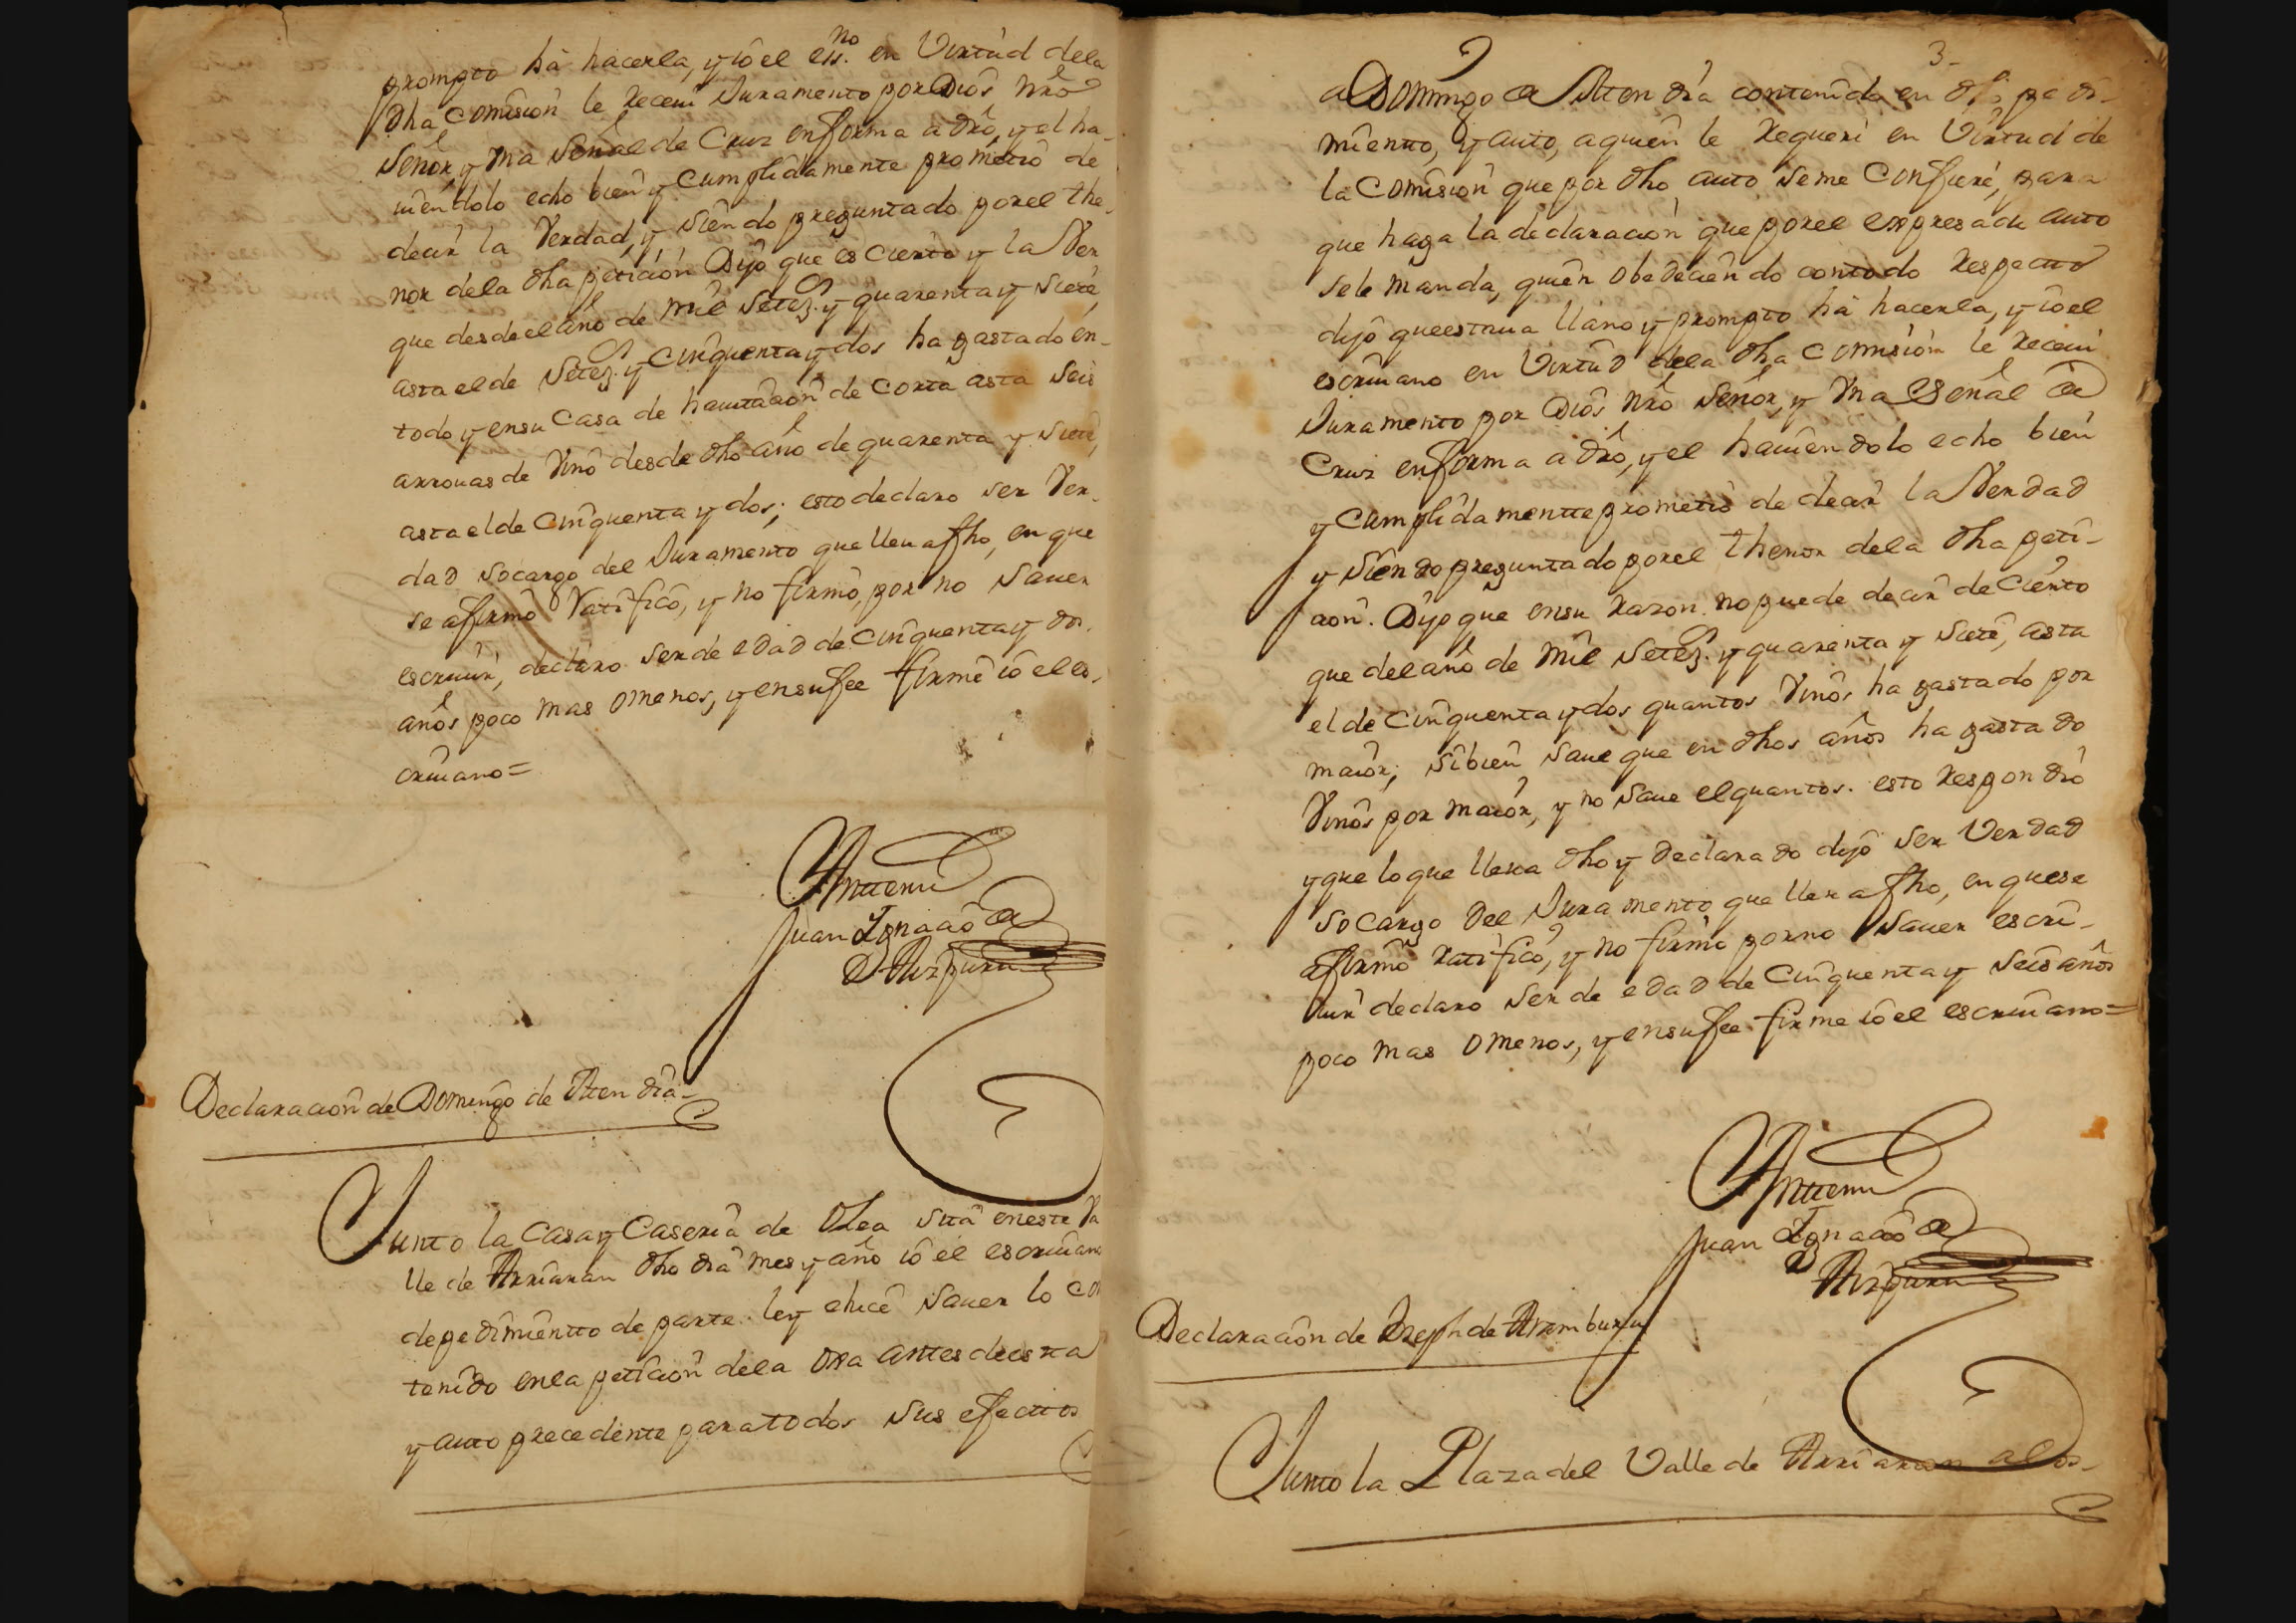 prompto há hacerla, y ió el essno. en Virtud dela
dha comision le Receui Juramento por Dios nrô
Señor y Vna Señal de Cruz en forma a dro, y el ha-
uiendolo echo bien y Cumplidamente prometió de
decir la Verdad, y siendo preguntado por el the-
nor dela dha peticion Dijo que es Cierto y la Ver
que desde el año de mil Setez.s y quarenta y Siete,
asta el de Setez.s y Cinquenta y dos ha gastado en-
todo y en su Casa de hauitacion de Corta asta Seis
arrouas de Vino desde dho año de quarenta y Siete,
asta el de Cinquenta y dos; esto declaro ser Ver-
dad so cargo del Juramento que lleua fho, en que
se afirmó Ratificó, y no firmó, por no Sauer
escriuir, declaro ser de edad de Cinquenta y dos
años poco mas o menos, y en su fee firmé ió el es-
criuano=
Antemi
Juan Ignacio de
Aizpuru
Declaracion de Domingo de Atendia-
Junto la Casa y Caseria de Olea sita en este Va
lle de Arriaran dho dia mes y año ió el escriuano
de pedimientto de parte ley e hice Sauer lo con
tenido en la peticion dela ora antes de esta
y auto precedente para todos sus efecttos
3-
a Domingo de Atendia contenido en dho pedi-
miento, y auto, a quien le Requeri en Virtud de
la Comision que por dho auto se me Confiere, para
que haga la declaracion que por el expresado auto
se le manda, quien obedeciendo con todo Respecto
dijo que estaua llano y prompto há hacerla, y ió el
escriuano en Virtud dela dha Comision le Receui
Juramento por Dios nrô Señor, y Vna Señal de
Cruz en forma a dro, y el hauiendolo echo bien
y Cumplidamentte prometió de decir la Verdad
y siendo preguntado por el thenor dela dha peti-
cion. Dijo que en su razon no puede decir de Cierto
que del año de mil Setez.s y quarenta y Siete, asta
el de Cinquenta y dos quantos Vinos ha gastado por
maior; si bien saue que en dhos años ha gastado
Vinos por maior, y no saue el quantos. esto Respondió
y que lo que lleua dho y declarado dijo ser Verdad
so cargo del Juramento que lleua fho, en que se
afirmó Ratificó, y no firmó por no Sauer escri-
uir declaro ser de edad de Cinquenta y Seis años
poco mas o menos, y en su fee firme ió el escriuano=
Antemi
Juan Ignacio de
Aizpuru
Declaracion de Joseph de Aramburu
Junto la Plaza del Valle de Arriaran a los-